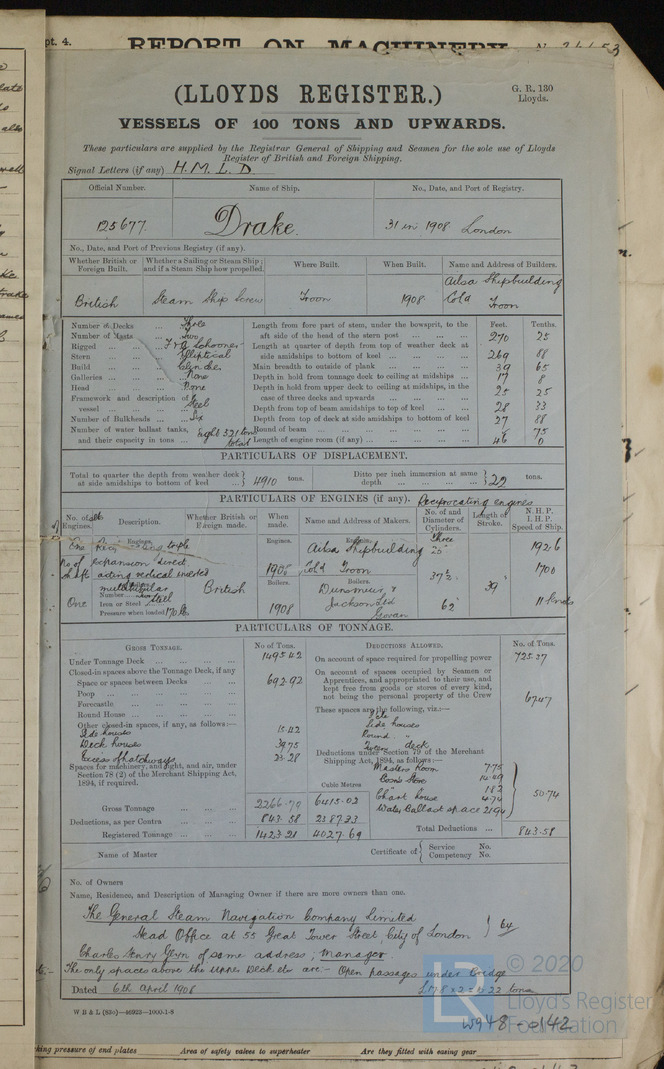 pt. 4.
REPORT ON MACHINERY
(LLOYDS REGISTER.)
G. R. 130
Lloyds.
VESSELS OF 100 TONS AND UPWARDS.
These particulars are supplied by the Registrar General of Shipping and Seamen for the sole use of Lloyds
Register of British and Foreign Shipping.
Signal Letters (if any) H. M. L. D.
Official Number. Name of Ship. No., Date, and Port of Registry.
125677. Drake. 31 in 1908 London
No., Date, and Port of Previous Registry (if any).
Whether British or Foreign Built. Whether a Sailing or Steam Ship; and if a Steam Ship how propelled. Where Built. When Built. Name and Address of Builders.
British Steam Ship Screw Troon 1908 Ailsa Shipbuilding Co Ld Troon
Number of Decks ... Three
Number of Masts ... Two
Rigged ... F & A Schooner
Stern ... Elliptical
Build ... Clencher
Galleries ... None
Head ... None
Framework and description of vessel ... Steel
Number of Bulkheads ... Six
Number of water ballast tanks, and their capacity in tons ... Eight 321 tons total
Feet. Tenths.
Length from fore part of stem, under the bowsprit, to the aft side of the head of the stern post ... 270 25
Length at quarter of depth from top of weather deck at side amidships to bottom of keel ... 269 88
Main breadth to outside of plank ... 39 65
Depth in hold from tonnage deck to ceiling at midships ... 17 8
Depth in hold from upper deck to ceiling at midships, in the case of three decks and upwards ... 25 25
Depth from top of beam amidships to top of keel ... 28 33
Depth from top of deck at side amidships to bottom of keel 27 88
Round of beam ... 75
Length of engine room (if any) ... 46 0
PARTICULARS OF DISPLACEMENT.
Total to quarter the depth from weather deck at side amidships to bottom of keel ... 4910 tons.
Ditto per inch immersion at same depth ... 22 tons.
PARTICULARS OF ENGINES (if any). Reciprocating engines
No. of sets of Engines. Description. Whether British or Foreign made. When made. Name and Address of Makers. No. of and Diameter of Cylinders. Length of Stroke. N.H.P. I.H.P. Speed of Ship.
Engines. Engines. Engines.
One triple Ailsa Shipbuilding Three 25" 192.6
No of Shaft expansion direct acting vertical inverted 1908 Co Ld Troon 37½ 39" 1700
Boilers. Boilers.
multitubular British Dunsmuir & Jackson Ld Govan
Number
One Iron or Steel Steel 1908 62" 11 knots
Pressure when loaded 170 lb.
PARTICULARS OF TONNAGE.
GROSS TONNAGE. No of Tons.
Under Tonnage Deck ... 1495.42
Closed-in spaces above the Tonnage Deck, if any
Space or spaces between Decks ... 692.92
Poop ...
Forecastle ...
Round House ...
Other closed-in spaces, if any, as follows:—
Side houses 15.42
Deck houses 39.75
Excess of hatchways 23.28
Spaces for machinery, and light, and air, under Section 78 (2) of the Merchant Shipping Act, 1894, if required.
Cubic Metres
Gross Tonnage 2266.79 6415.02
Deductions, as per Contra ... 843.58 2387.33
Registered Tonnage ... 1423.21 4027.69
DEDUCTIONS ALLOWED. No. of Tons.
On account of space required for propelling power 725.37
On account of spaces occupied by Seamen or Apprentices, and appropriated to their use, and kept free from goods or stores of every kind, not being the personal property of the Crew 67.47
These spaces are the following, viz.:—
Side houses
Round "
deck
Deductions under Section 79 of the Merchant Shipping Act, 1894, as follows:—
Masters Room 7.75
Bosn's Store 14.49
1.82
Chart house 4.74
Water Ballast space 21.94
50.74
Total Deductions ... 843.58
Name of Master
Certificate of Service No.
Competency No.
No. of Owners
Name, Residence, and Description of Managing Owner if there are more owners than one.
The General Steam Navigation Company Limited
Head Office at 55 Great Tower Street, City of London 64
Charles Henry of same address, Manager.
The only spaces above the upper Deck etc are:- Open passages under Bridge
Dated 6th April 1908
W B & L (83o)—46923—1000-1-8
© 2020
LR
Lloyd's Register
Foundation
W948-0142
king pressure of end plates Area of safety valves to superheater Are they fitted with easing gear